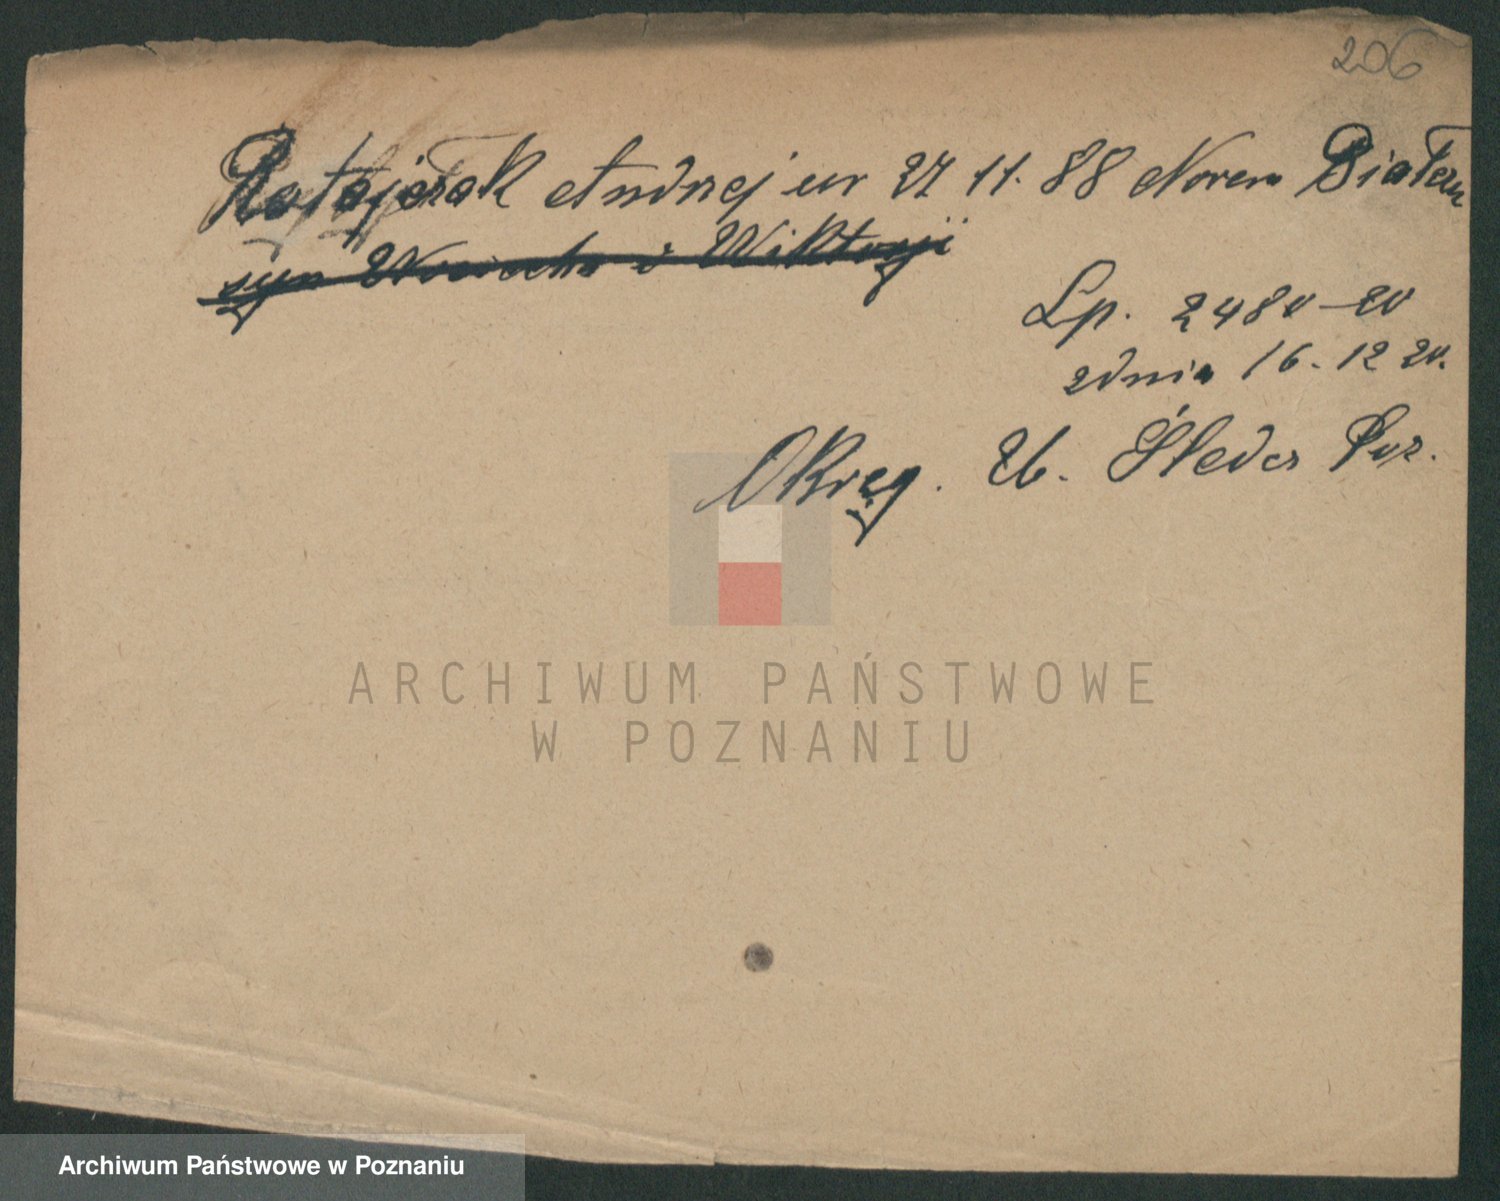 206
Ratajczak Andrzej ur 27 11. 88 Norem Białem
syn Wociecha i Wiktorji
Lp. 2480-20
zdnia 16-12 20.
Okręg. U. Śledcz Poz.
ARCHIWUM PAŃSTWOWE
W POZNANIU
Archiwum Państwowe w Poznaniu